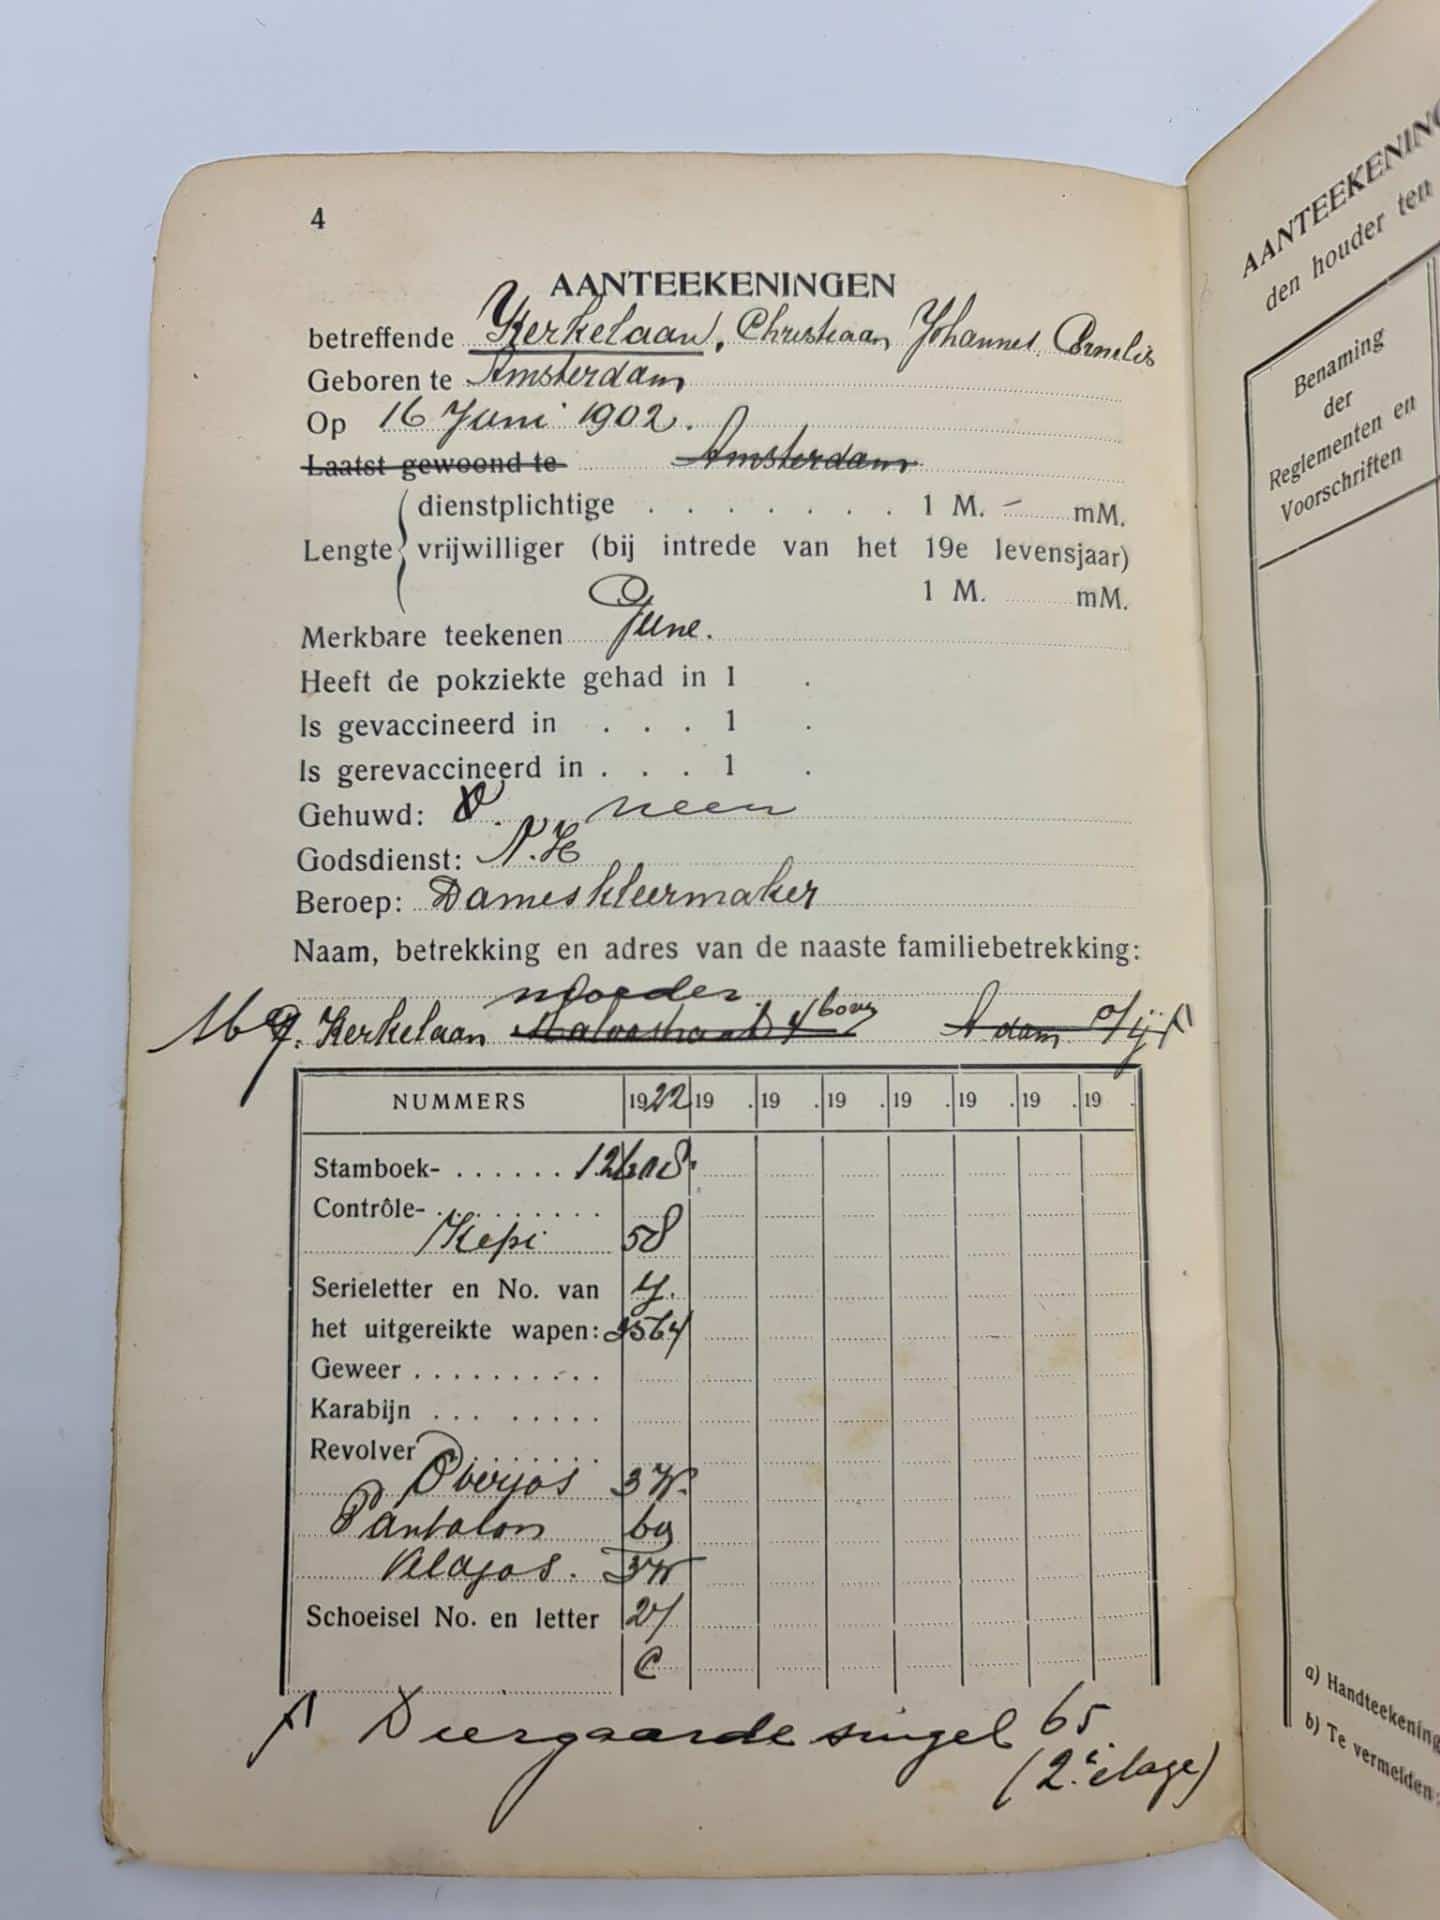 4
AANTEEKENINGEN
betreffende Kerkelaan, Christiaan Johannes Cornelis
Geboren te Amsterdam
Op 16 Juni 1902.
Laatst gewoond te Amsterdam
dienstplichtige . . . . . . . 1 M. – mM.
Lengte vrijwilliger (bij intrede van het 19e levensjaar)
1 M. mM.
Merkbare teekenen Geene.
Heeft de pokziekte gehad in 1 .
Is gevaccineerd in . . . 1 .
Is gerevaccineerd in . . . 1 .
Gehuwd: neen
Godsdienst: N.H
Beroep: Dameskleermaker
Naam, betrekking en adres van de naaste familiebetrekking:
moeder.
Kerkelaan boven A'dam
NUMMERS 1922 19 . 19 . 19 . 19 . 19 . 19 . 19 .
Stamboek- . . . . . .
Contrôle- . . . . . . . . .
Kepi 58
Serieletter en No. van Y.
het uitgereikte wapen: 3564
Geweer . . . . . . . . . .
Karabijn . . . . . . . .
Revolver . . . . . . .
Overjas 3 W.
Pantalon 69
Veldjas. 3 W
Schoeisel No. en letter 27
C
Diergaardesingel 65
(2e étage)
AANTEEKENING
den houder ten
Benaming
der
Reglementen en
Voorschriften
a) Handteekening
b) Te vermelden: